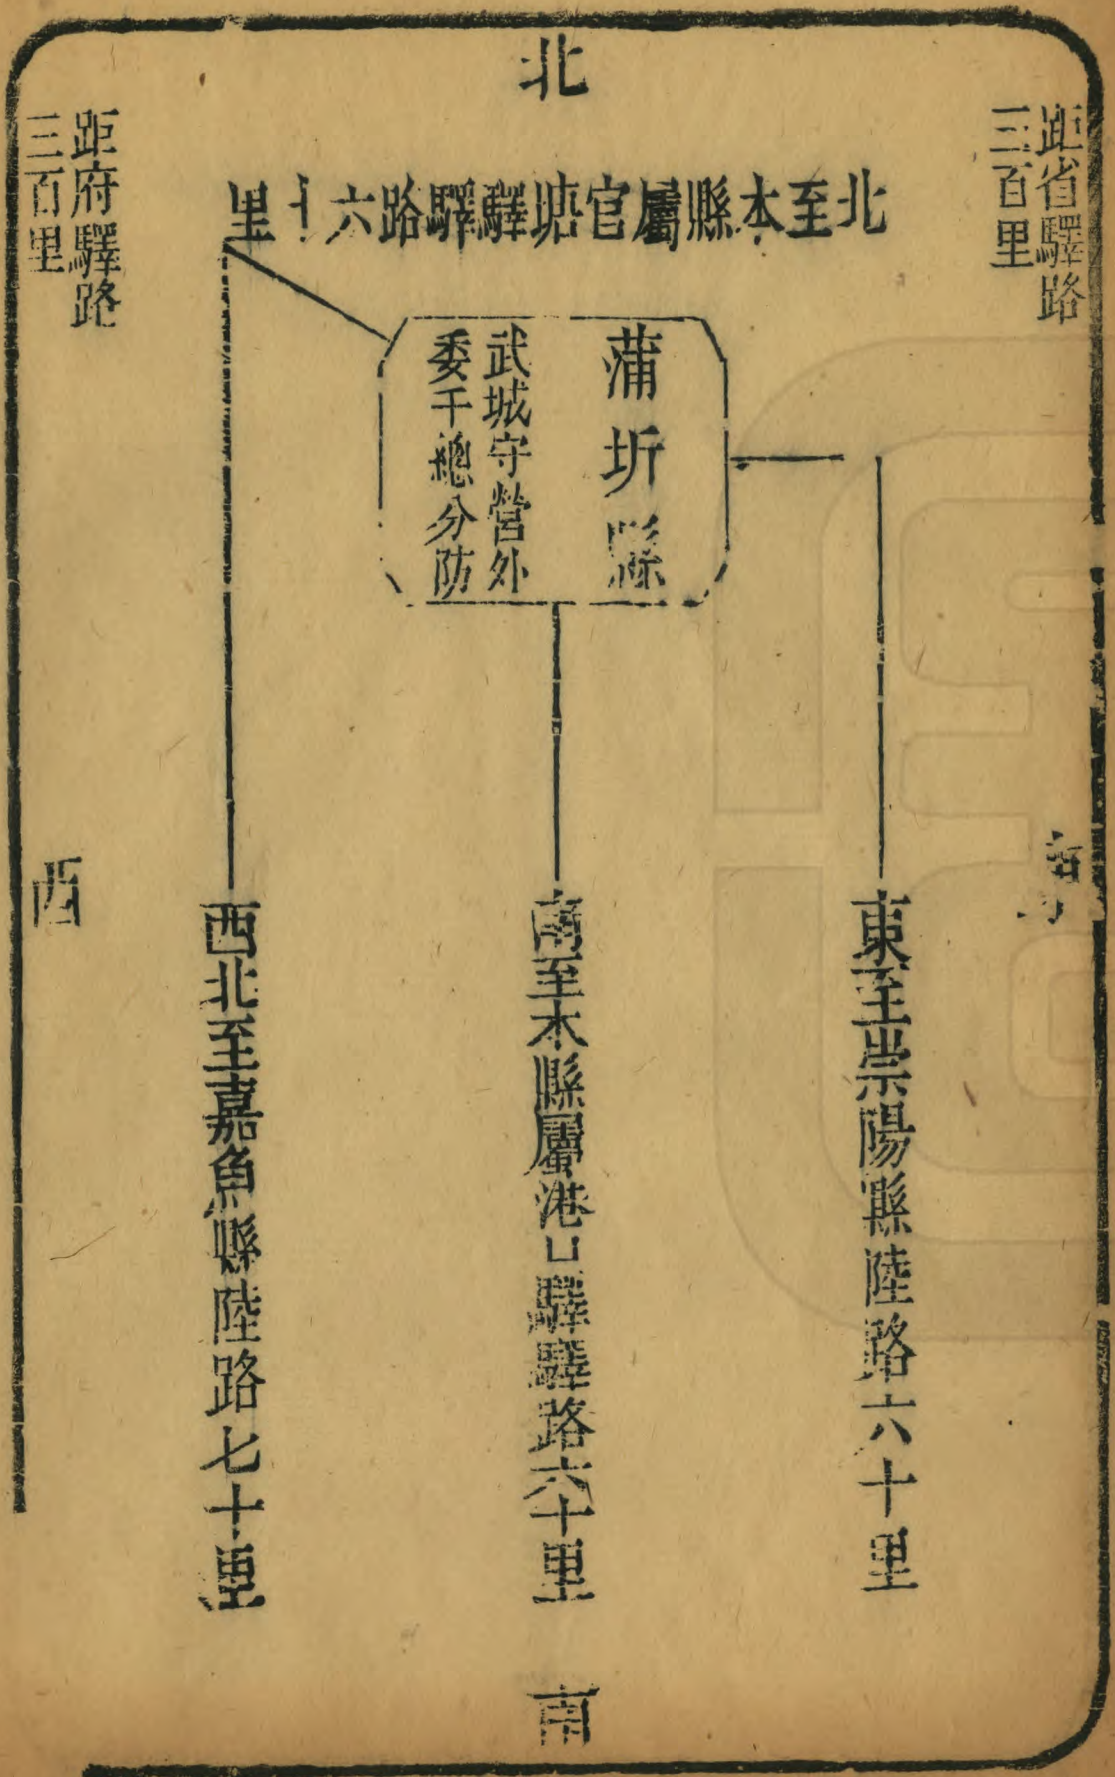 北
距省驛路
三百里
北至本縣屬官塘驛驛路六十里
距府驛路
三百里
蒲圻縣
武城守營外
委千總分防
西
東至崇陽縣陸路六十里
南至本縣屬港口驛驛路六十里
西北至嘉魚縣陸路七十里
南